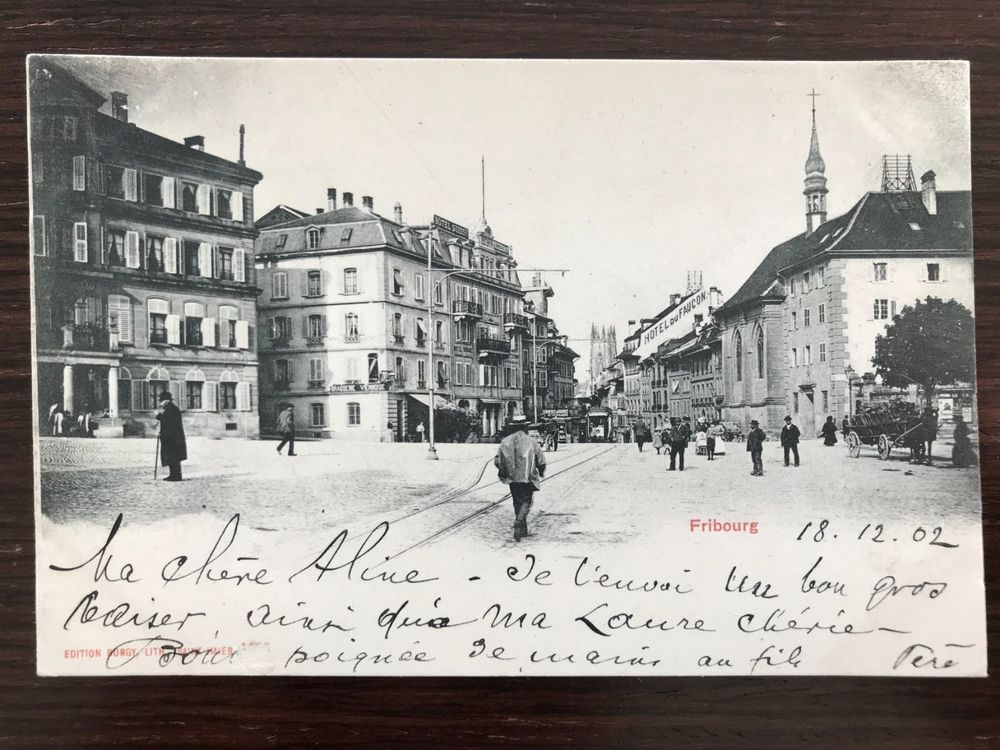 HOTEL DU FAUCON
Fribourg
18.12.02
Ma chère Aline - Je t'envoi un bon gros
baiser, ainsi qu'a ma Laure chérie -
EDITION BURGY, LITH. SAINT-IMIER
Bon poignée de mains au fils Père